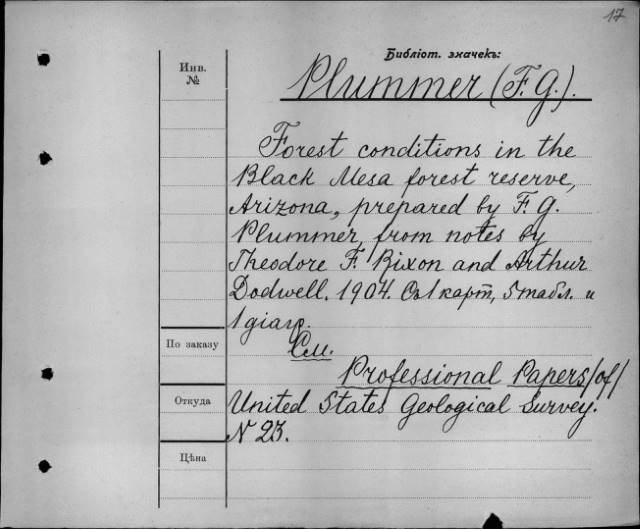 17
Библіот. значекъ:
Инв.
№
Plummer (F. G.).
Forest conditions in the
Black Mesa forest reserve,
Arizona, prepared by F. G.
Plummer, from notes by
Theodore F. Rixon and Arthur
Dodwell. 1904. Съ 1 карт, 5 табл. и
1 діагр.
По заказу
См.
Professional Papers /of/
Откуда
United States Geological Survey.
N 23.
Цѣна